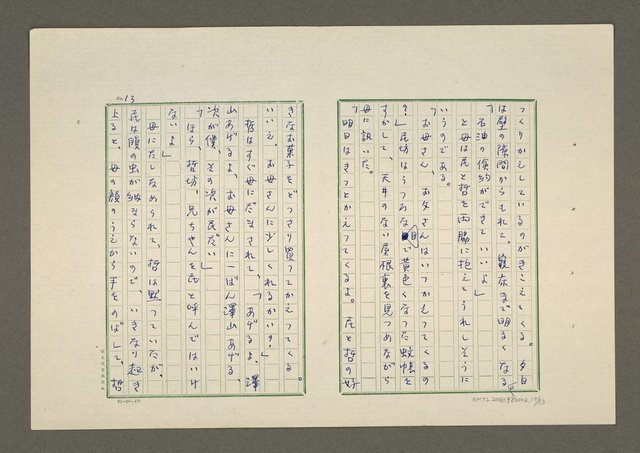 つくりかえしているのがきこえてくる。夕日
は壁の隙間からもれて、寝床まで明るくなる。
「石油の倹約ができていいよ」
と母は民と哲を両脇に抱えてうれしそうに
いうのである。
「お母さん、お父さんはいつかえってくるの
?」民坊はうつろな目で黄色くなった蚊帳を
すかして、天井のない屋根裏を見つめながら
母に訊いた。
「明日はきっとかえってくるよ。民と哲の好
きなお菓子をどっさり買ってかえってくる。
いいえ、お母さんに少しくれるかい?」
哲はすぐ母にだまされて、「あげるよ、澤
山あげるよ、お母さんに一ばん澤山あげる、
次が僕、その次が民だい」
「ほら、哲坊、兄ちゃんを民と呼んではいけ
ないよ」
母にたしなめられて、哲は黙っていたが、
民は腹の虫が納まらないので、いきなり起き
上ると、母の顔のうえから手をのばして、哲
No.13
NMTL20060980002,17/23